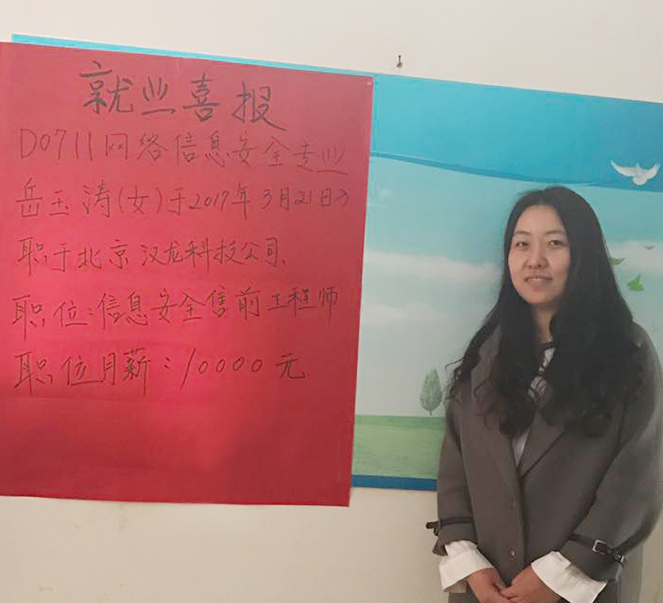 就业喜报
D0711网络信息安全专业
岳玉涛(女)于2017年3月21日入
职于北京汉龙科技公司、
职位:信息安全售前工程师
职位月薪:10000元